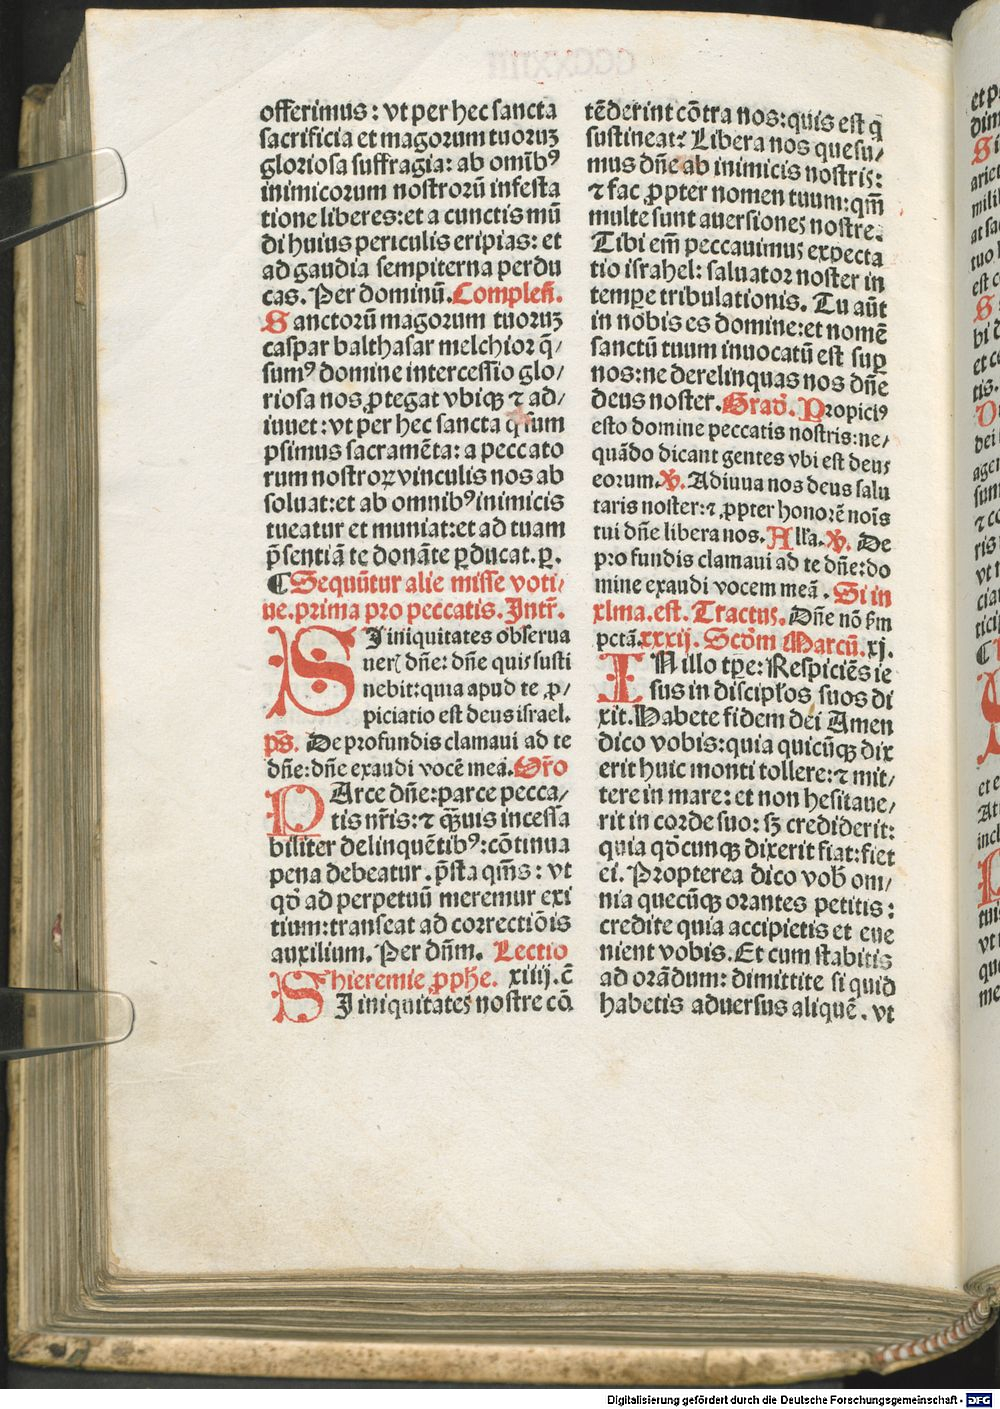 offerimus: vt per hec sancta
sacrificia et magorum tuoruꝫ
gloriosa suffragia: ab omībꝰ
inimicorum nostrorū infesta
tione liberes: et a cunctis mū
di huius periculis eripias: et
ad gaudia sempiterna perdu
cas. Per dominū. Compleñ.
Sanctorū magorum tuoruꝫ
caspar balthasar melchior q̄/
sumꝰ domine intercessio glo/
riosa nos ꝓtegat vbiqꝫ ⁊ ad/
iuuet: vt per hec sancta q̄ sum
psimus sacramēta: a peccato
rum nostroꝝ vinculis nos ab
soluat: et ab omnibꝰ inimicis
tueatur et muniat: et ad tuam
p̄sentiā te donāte ꝑducat. ꝑ.
¶ Sequūtur alie misse voti/
ue. prima pro peccatis. Intr̄.
SI iniquitates obserua
ueris dn̄e: dn̄e quis susti
nebit: quia apud te ꝓ/
piciatio est deus israel.
ps̄. De profundis clamaui ad te
dn̄e: dn̄e exaudi vocē meā. Or̄o
PArce dn̄e: parce pecca/
tis nr̄is: ⁊ q̄uis incessa
biliter delinquētibꝰ: cōtinua
pena debeatur. p̄sta qm̄s: vt
qd̄ ad perpetuū meremur exi
tium: transeat ad correctiōis
auxilium. Per dn̄m. Lectio
hieremie ꝓphe. xiiij. c̄
SI iniquitates nostre cō
tēderint cōtra nos: quis est q̄
sustineat? Libera nos quesu/
mus dn̄e ab inimicis nostris:
⁊ fac ꝓpter nomen tuum: qm̄
multe sunt auersiones nostre.
Tibi em̄ peccauimus expecta
tio israhel: saluator noster in
tempe tribulationis. Tu aūt
in nobis es domine: et nomē
sanctū tuum inuocatū est suꝑ
nos: ne derelinquas nos dn̄e
deus noster. Grad̄. Propiciꝰ
esto domine peccatis nostris: ne/
quādo dicant gentes vbi est deus
eorum. ℣. Adiuua nos deus salu
taris noster: ⁊ ꝓpter honorē nois̄
tui dn̄e libera nos. All'a. ℣. De
profundis clamaui ad te dn̄e: do
mine exaudi vocem meā. Si in
xlma. est. Tractus. Dn̄e nō s̄m
pctā. xxxij. Scd̄m Marcū. xj.
IN illo tꝑe: Respiciēs ie
sus in discipl̄os suos di
xit. Habete fidem dei Amen
dico vobis: quia quicūqꝫ dix
erit huic monti tollere: ⁊ mit/
tere in mare: et non hesitaue/
rit in corde suo: sꝫ crediderit:
quia qd̄cunqꝫ dixerit fiat: fiet
ei. Propterea dico vob̄ om/
nia quecūqꝫ orantes petitis:
credite quia accipietis et eue
nient vobis. Et cum stabitis
ad orādum: dimittite si quid
habetis aduersus aliquē. vt
Digitalisierung gefördert durch die Deutsche Forschungsgemeinschaft - DFG